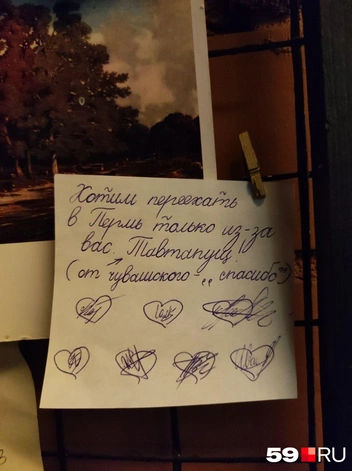 Хотим переехать
в Пермь только из-за
вас. Тавтапуç!
(от чувашского - „спасибо")
59.RU